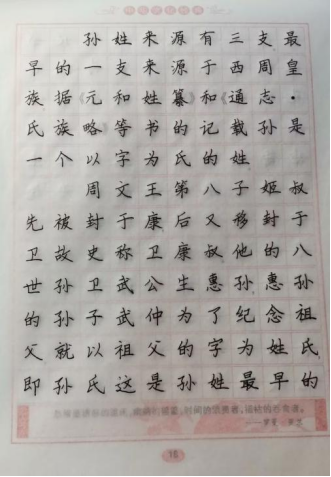 孙姓来源有三支最
早的一支来源于西周皇
族据《元和姓纂》和《通志·
氏族略》等书的记载孙是
一个以字为氏的姓
周文王第八子姬叔
先被封于康后又移封于
卫故史称卫康叔他的八
世孙卫武公生惠孙惠孙
的孙子武仲为了纪念祖
父就以祖父的字为姓氏
即孙氏这是孙姓最早的
16